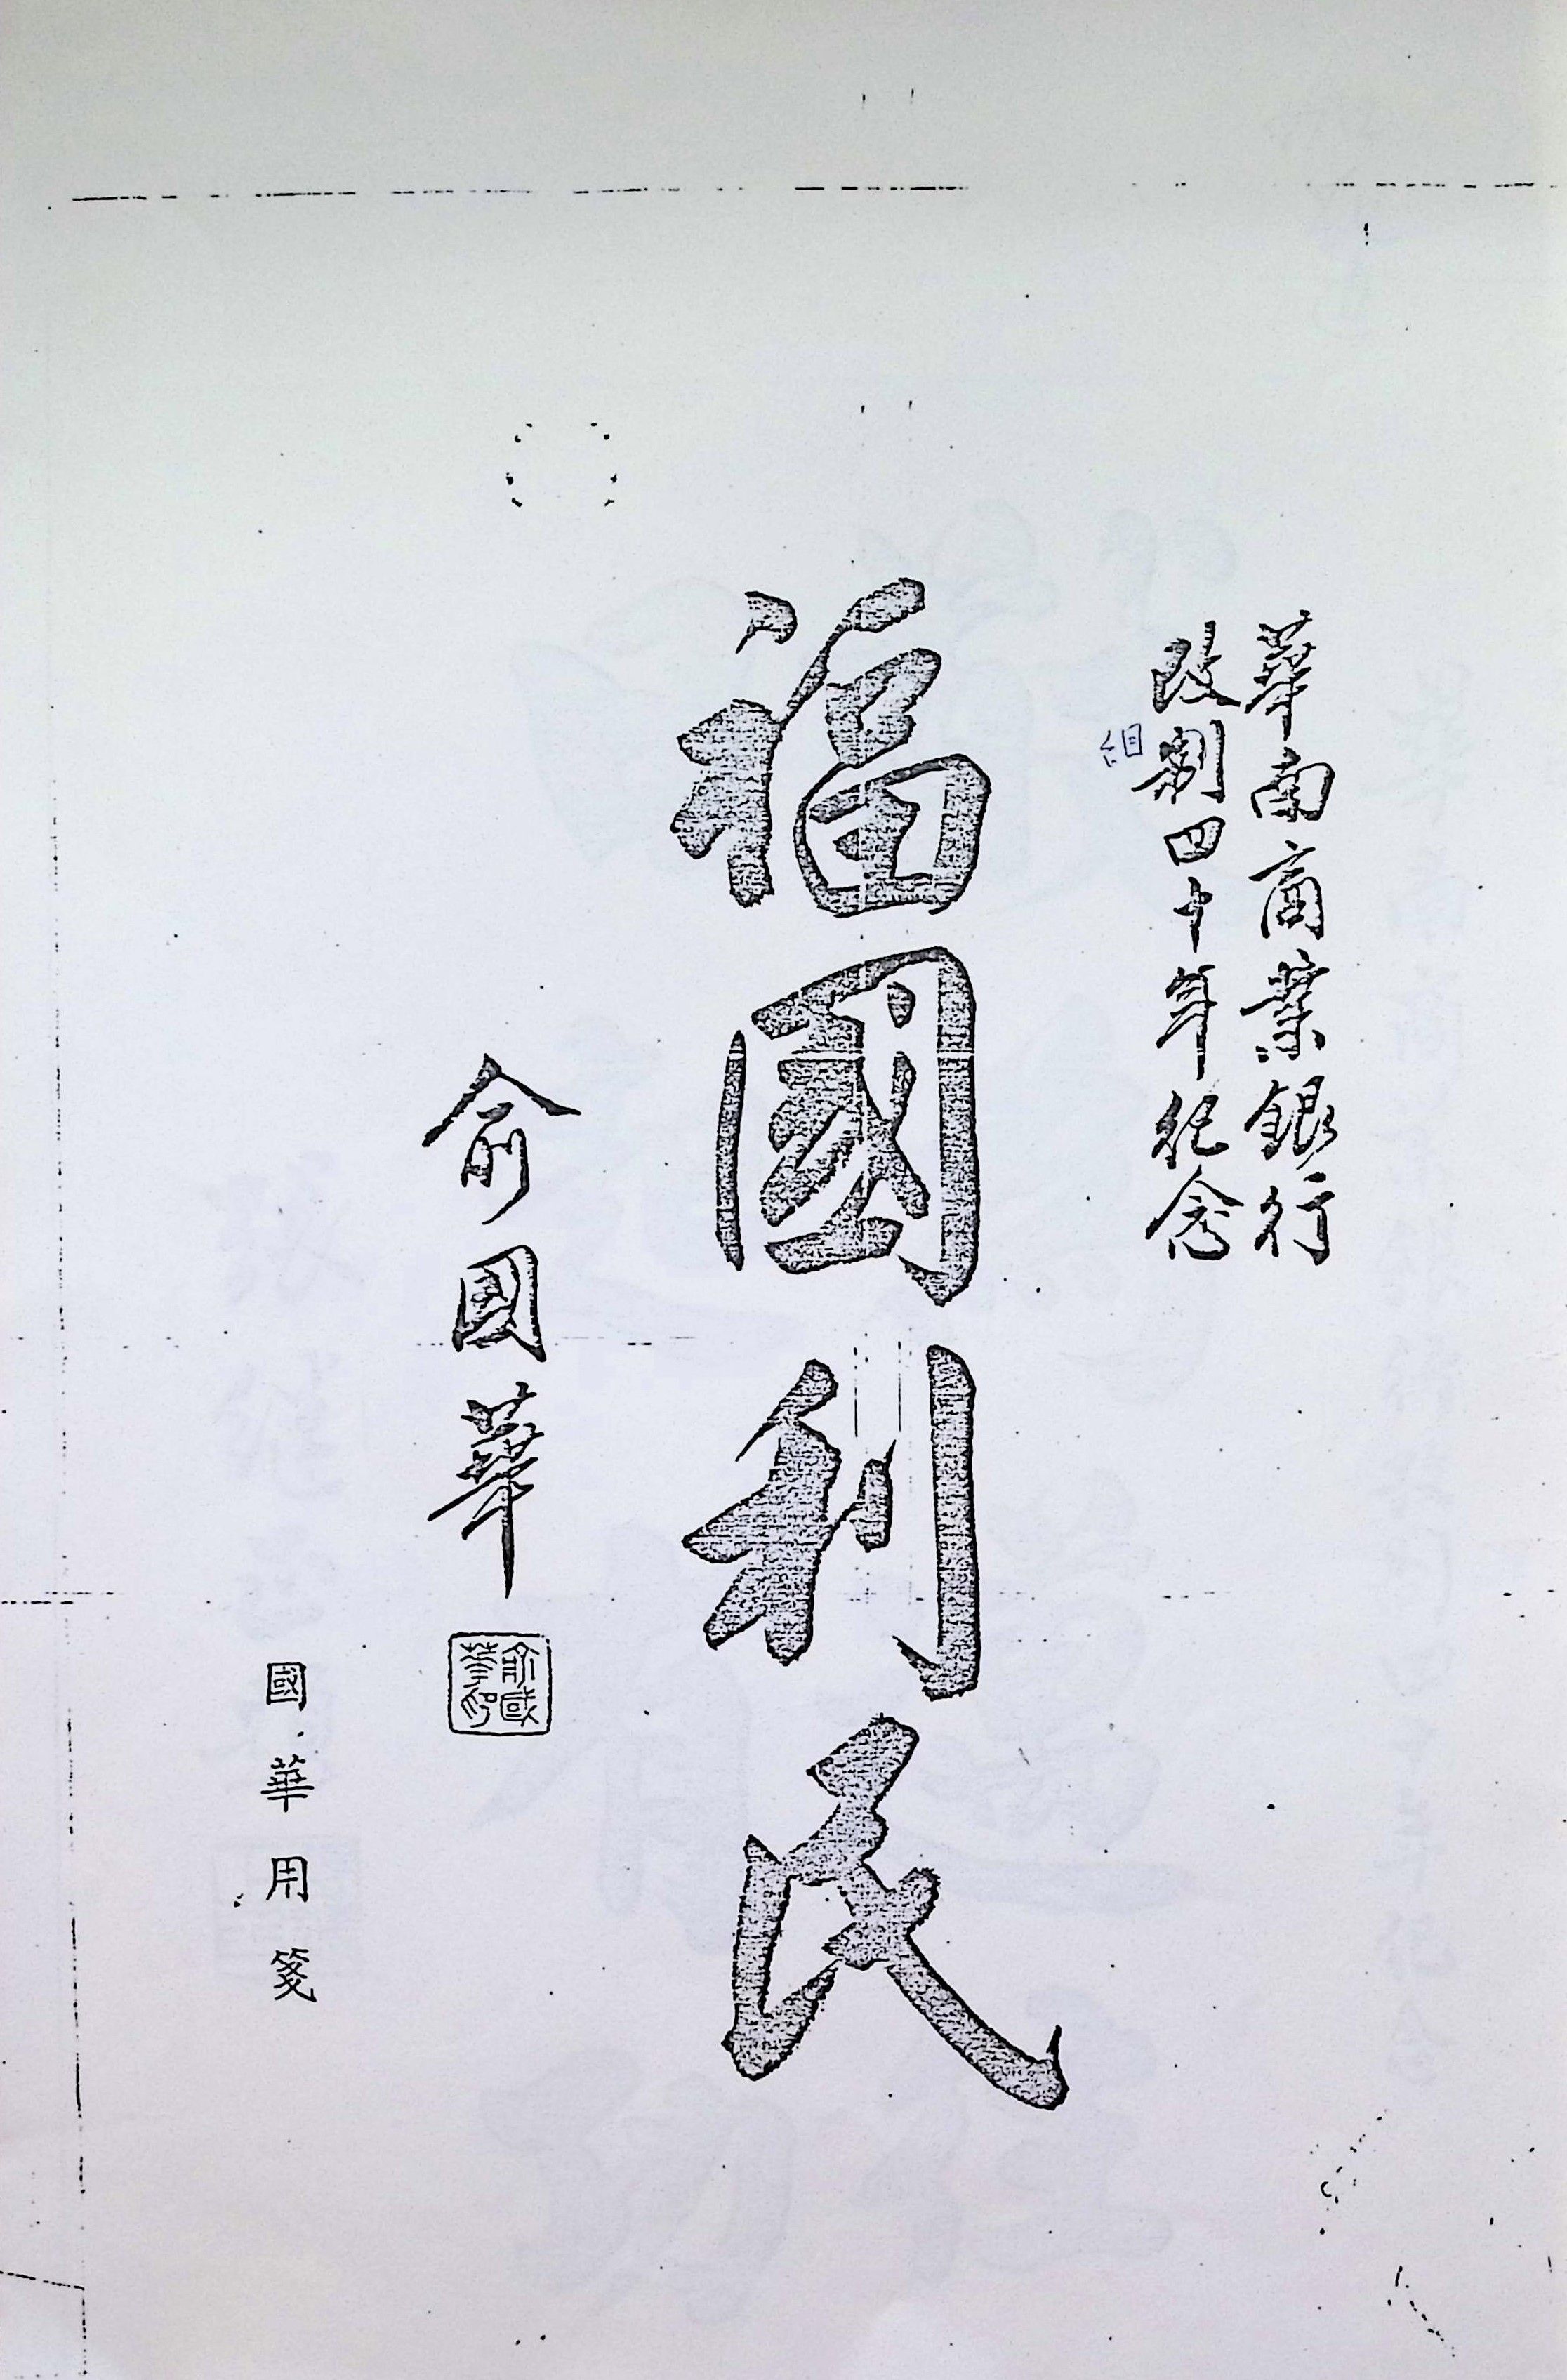 華南商業銀行
改制四十年紀念
組
福國利民
俞國華
俞國華印
國華用箋